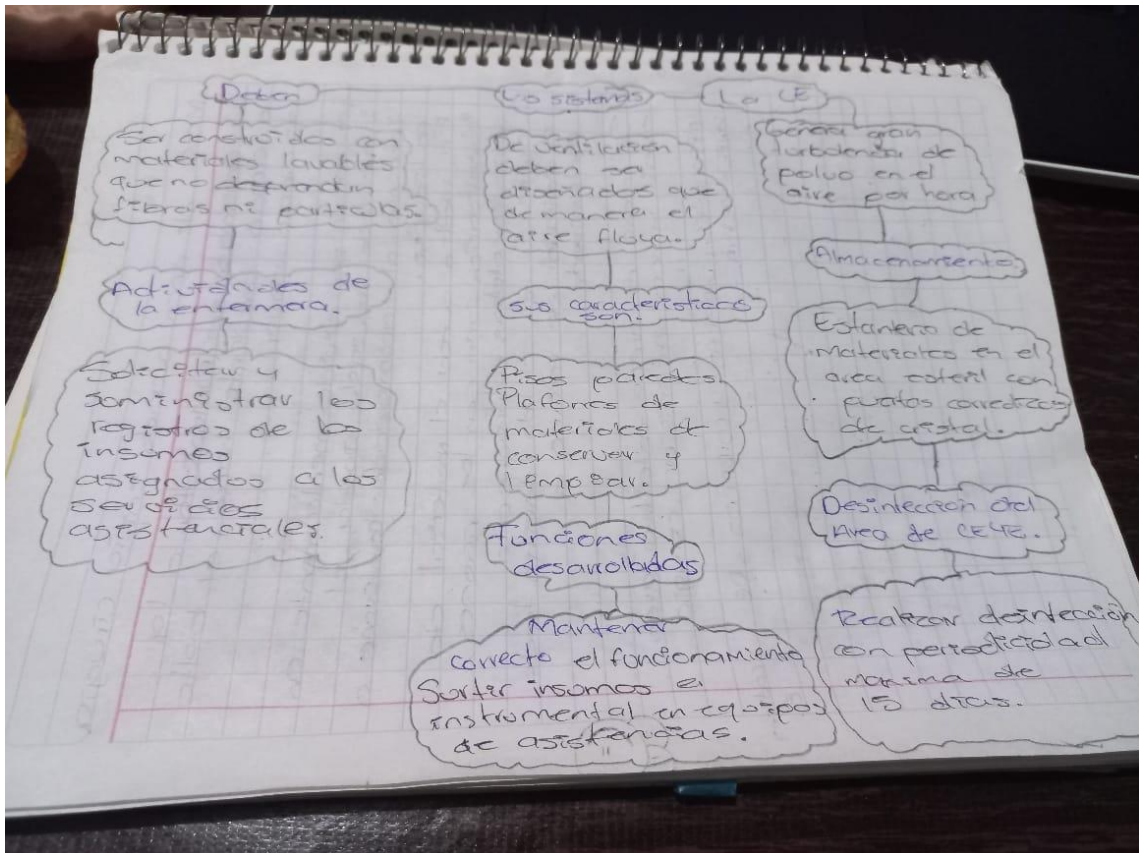 Deben
Ser construidos con
materiales lavables
que no desprendan
fibras ni particulas.
Actividades de
la enfermera.
Solicitar y
Suministrar los
registros de los
insumos
asignados a los
servicios
asistenciales.
Lo sistemas
De ventilación
deben ser
diseñados que
de manera el
aire fluya.
Sus caracteristicas
son.
Pisos paredes
Plafones de
materiales de
conservar y
limpiar.
Funciones
desarrolladas
Mantener
correcto el funcionamiento
Surtir insumos e
instrumental en equipos
de asistencias.
La CE
Genera gran
turbulencia de
polvo en el
aire por hora
Almacenamiento.
Estanteria de
Materiales en el
area esteril con
puertas corredizas
de cristal.
Desinfeccion del
Area de CEYE.
Realizar desinfección
con periodicidad
maxima de
15 dias.